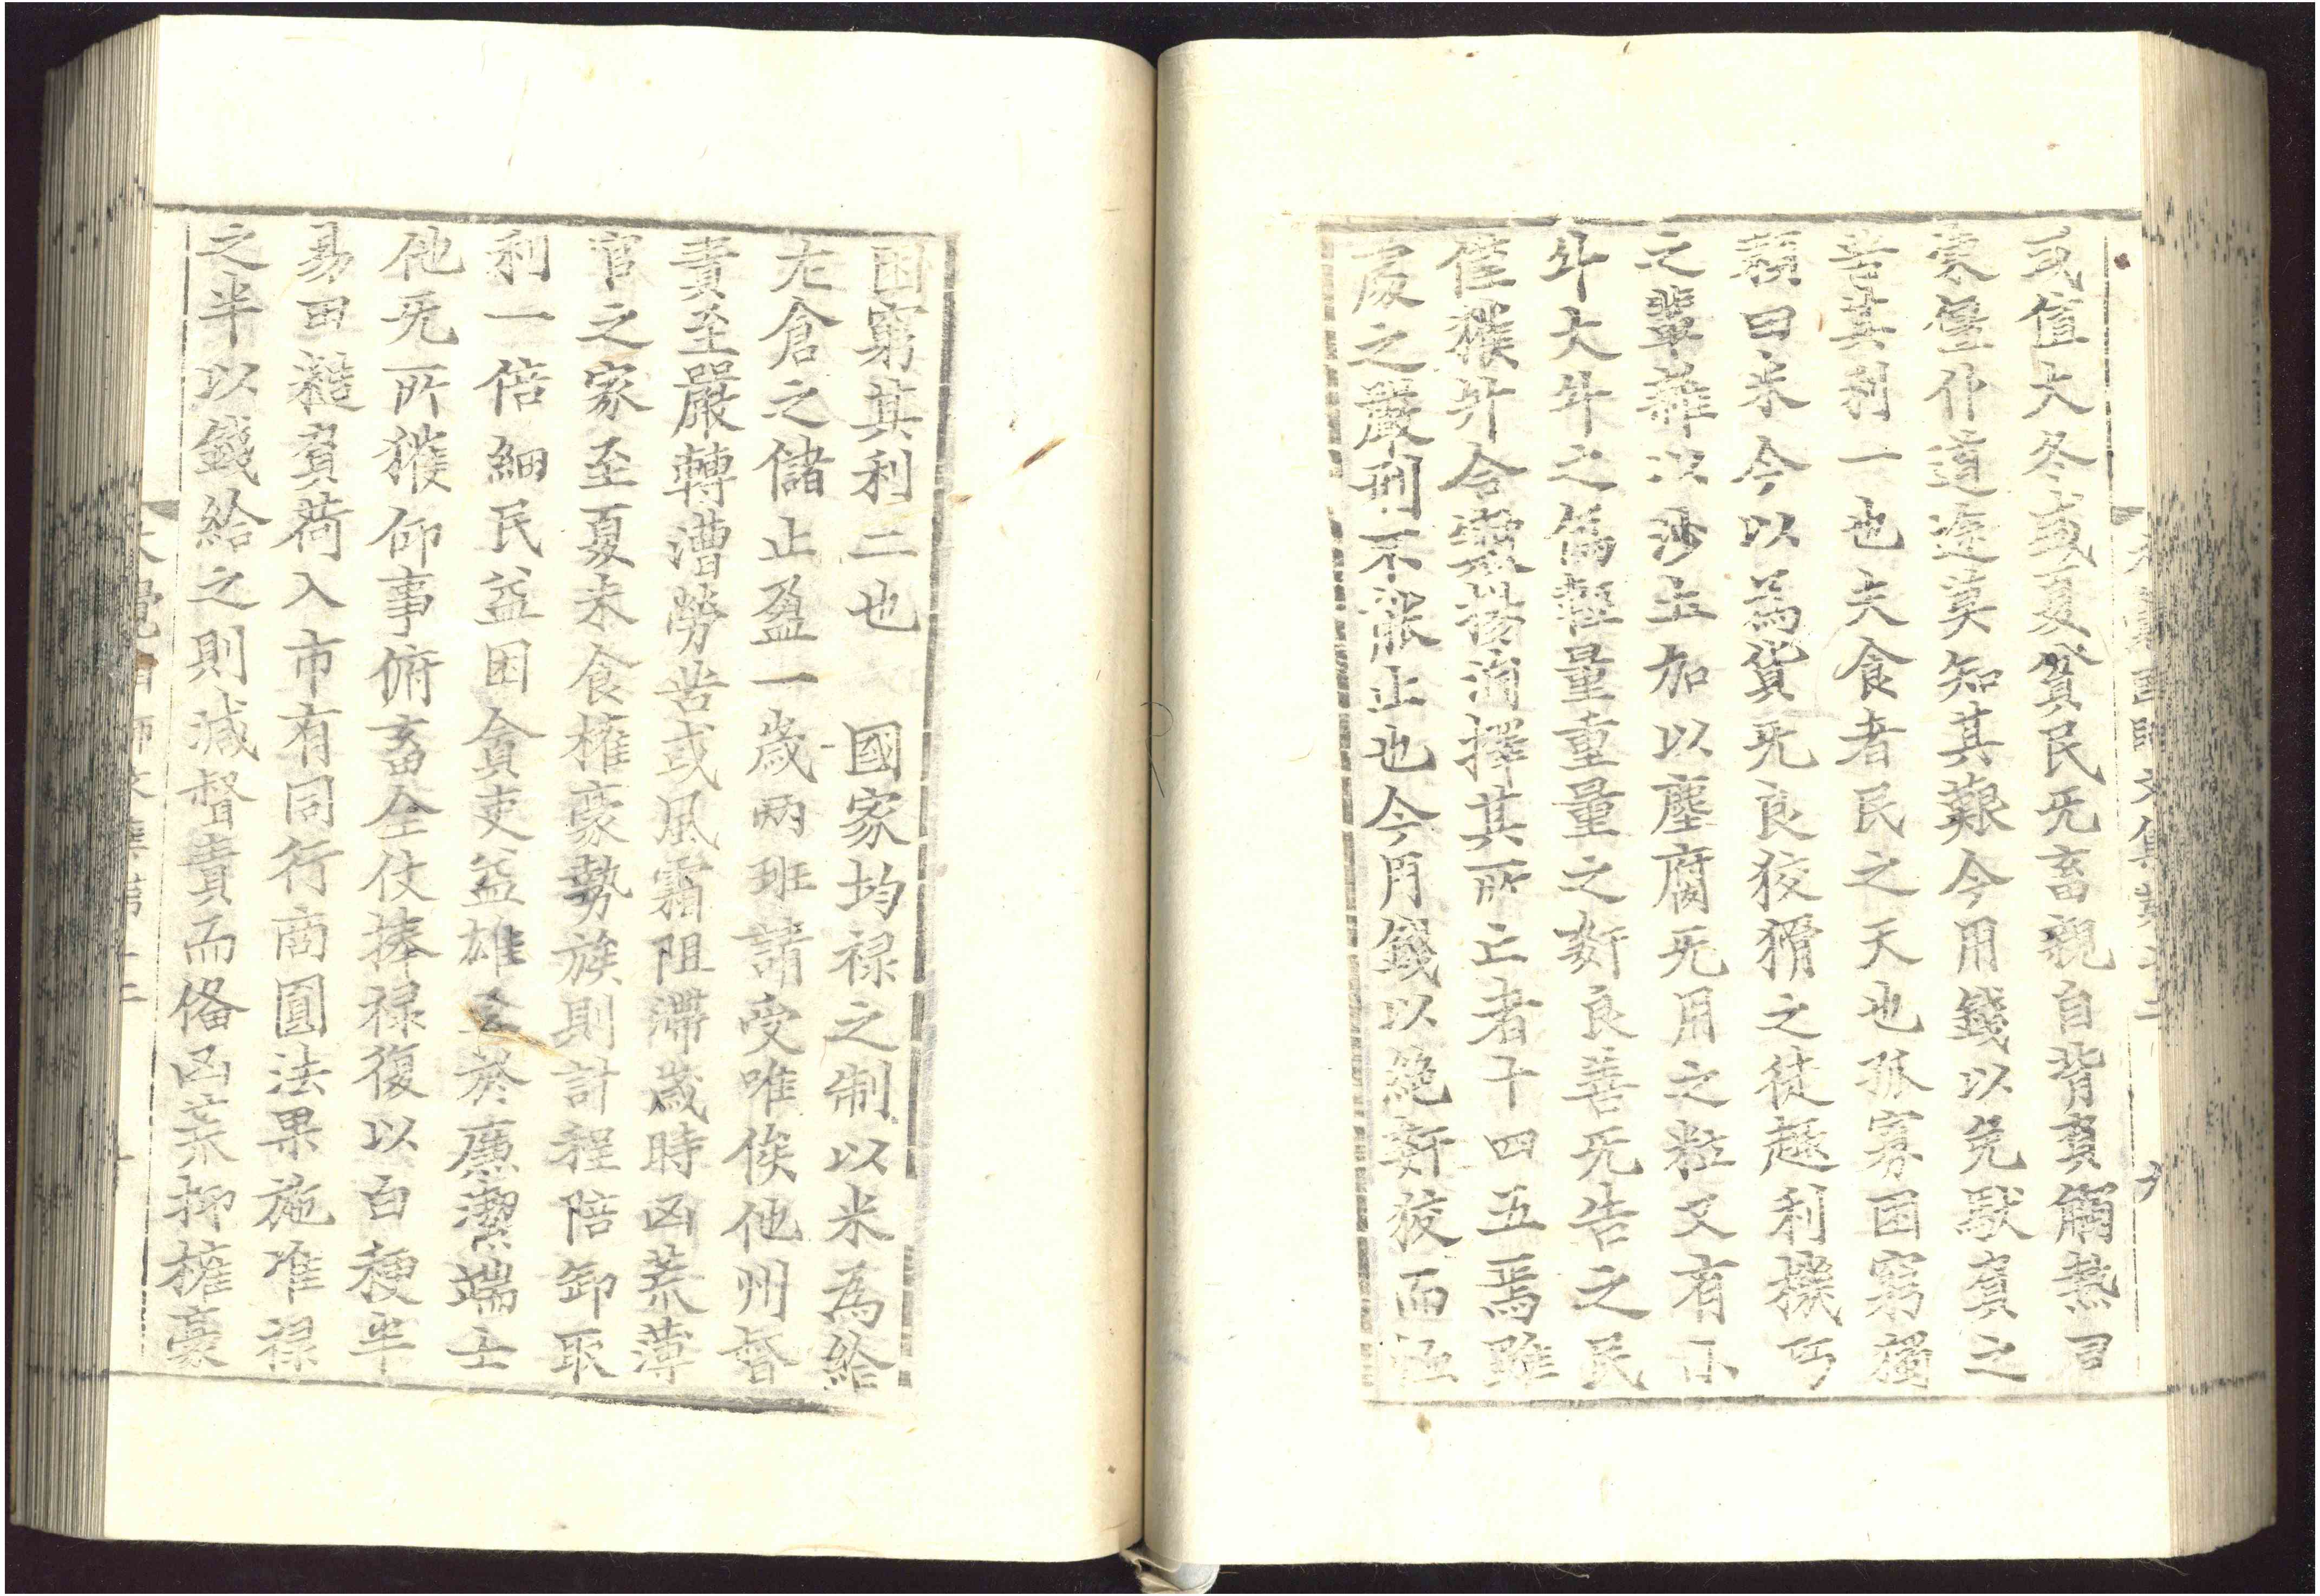 或値大冬或夏貧民无畜親自背負觸熱
寒僵仆道途莫知其艱今用錢以免䭾負之
苦其利一也夫食者民之天也孤寡困窮獨
賴日米今以為貨无良狡猾之徒趍利機巧
之輩雜以沙土加以塵腐无用之粒又有小
斗大斗之僞輕量重量之姧良善无告之民
僅獲升合簸揚淘擇其所亡者十四五焉雖
屢之嚴刑不能止也今用錢以絶姧狡而
困窮其利二也 國家均禄之制以米為給
左倉之儲止盈一歲兩班請受唯俟他州督
責至嚴轉漕勞苦或風霜阻滯歲時凶荒薄
官之家至夏未食權豪勢族則計程陪卸取
利一倍細民益困貪吏益雄至於廉潔端士
他无所獲仰事俯畜全仗捧禄復以白粳半
易田糙負荷入市有同行商圓法果施准禄
之半以錢給之則減督責而俻凶荒抑權豪